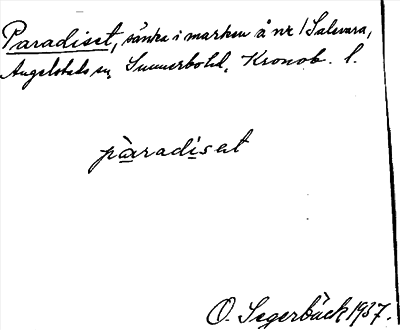 Paradiset, sänka i marken å nr 1 Salevara,
Angelstads sn, Sunnerbo hd, Kronob. l.
pàradìset
O. Segerbäck 1937.